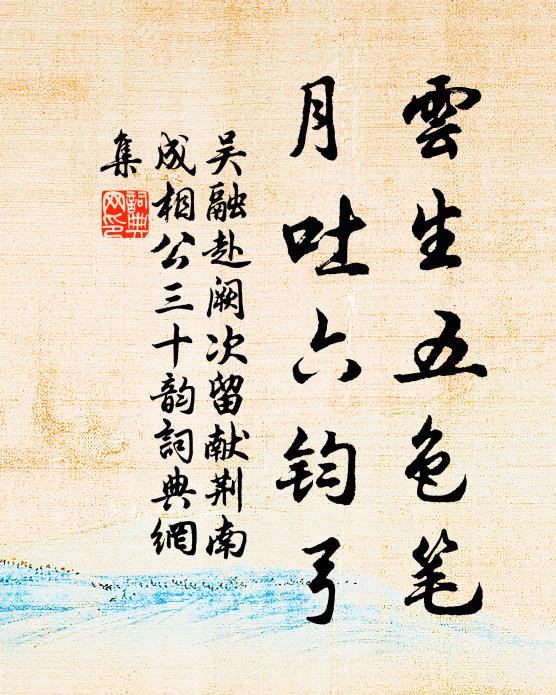 雲生五色笔
月吐六钧弓
吴融赴阙次留献荆南
成相公三十韵詞典網
集
詞典網印